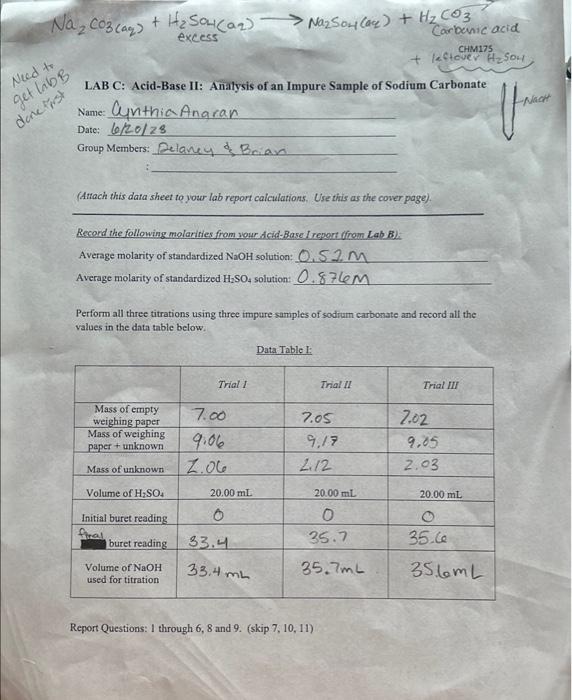 Na2CO3(aq) + H2SO4(aq) → Na2SO4(aq) + H2CO3
excess
Carbonic acid
CHM175
+ leftover H2SO4
Need to
get lab B
done first
NaOH
LAB C: Acid-Base II: Analysis of an Impure Sample of Sodium Carbonate
Name: Cynthia Angran
Date: 6/20/23
Group Members: Delaney & Brian
:
(Attach this data sheet to your lab report calculations. Use this as the cover page).
Record the following molarities from your Acid-Base I report (from Lab B):
Average molarity of standardized NaOH solution: 0.52 M
Average molarity of standardized H2SO4 solution: 0.876M
Perform all three titrations using three impure samples of sodium carbonate and record all the
values in the data table below.
Data Table I:
Trial I Trial II Trial III
Mass of empty
weighing paper 7.00 7.05 7.02
Mass of weighing
paper + unknown 9.06 9.17 9.05
Mass of unknown 2.06 2.12 2.03
Volume of H2SO4 20.00 mL 20.00 mL 20.00 mL
Initial buret reading 0 0 0
final
buret reading 33.4 35.7 35.6
Volume of NaOH
used for titration 33.4 mL 35.7mL 35.6mL
Report Questions: 1 through 6, 8 and 9. (skip 7, 10, 11)